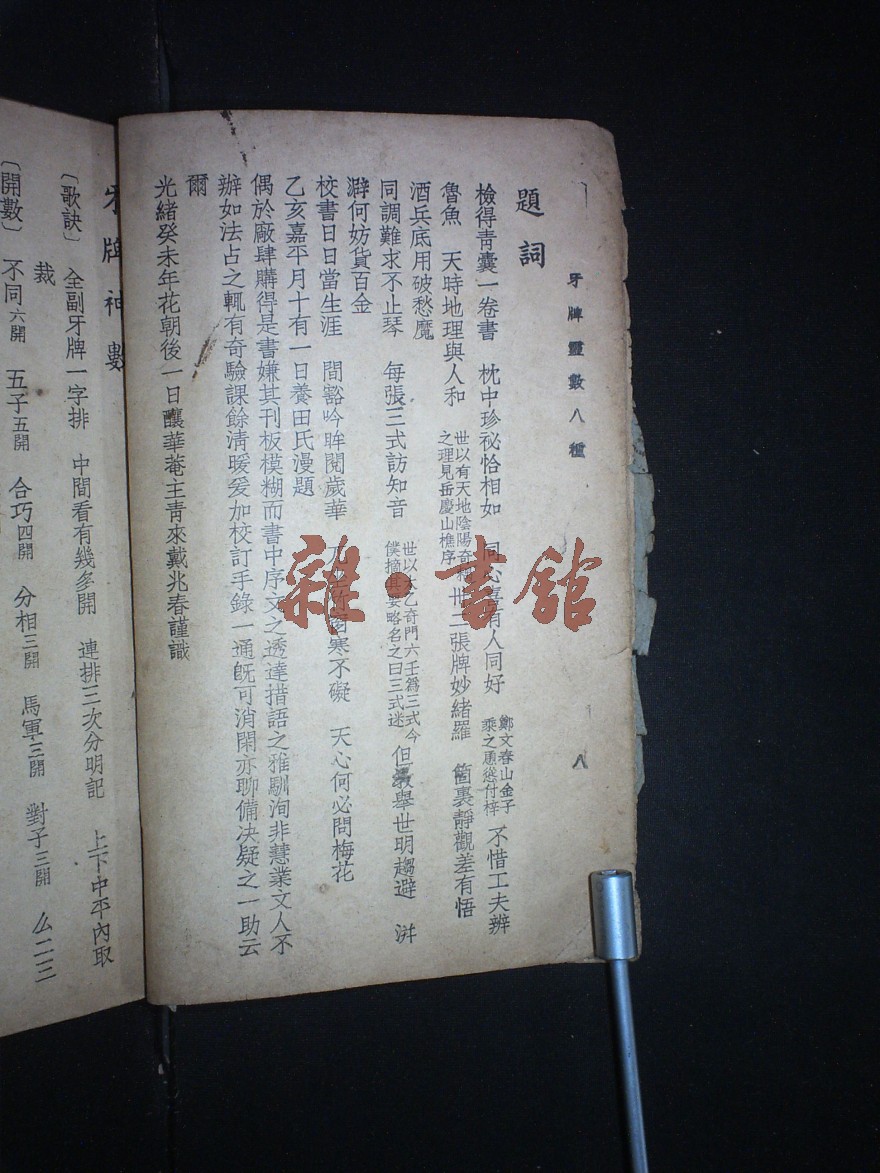 牙牌靈數八種
八
題詞
檢得靑囊一卷書 枕中珍祕恰相如 同心喜有人同好 鄭文春山金子乘之慂付梓 不惜工夫辨
魯魚 天時地理與人和 世以有天地陰陽奇 之理見岳慶山樵序 卅二張牌妙緖羅 箇裏靜觀差有悟
酒兵底用破愁魔
同調難求不止琴 每張三式訪知音 世以太乙奇門六壬爲三式今僕摘其要略名之曰三式迷 但敎舉世明趨避 洴
澼何妨貨百金
校書日日當生涯 間豁吟眸閱歲華 寒不礙 天心何必問梅花
乙亥嘉平月十有一日養田氏漫題
偶於廠肆購得是書嫌其刊板模糊而書中序文之透達措語之雅馴洵非慧業文人不
辦如法占之輒有奇驗課餘淸暖爰加校訂手錄一通旣可消閑亦聊備決疑之一助云
爾
光緖癸未年花朝後一日釀華菴主靑來戴兆春謹識
牙牌神數
〔歌訣〕 全副牙牌一字排 中間看有幾多開 連排三次分明記 上下中平內取
裁
〔開數〕 不同六開 五子五開 合巧四開 分相三開 馬軍三開 對子三開 么二三
雜·書館